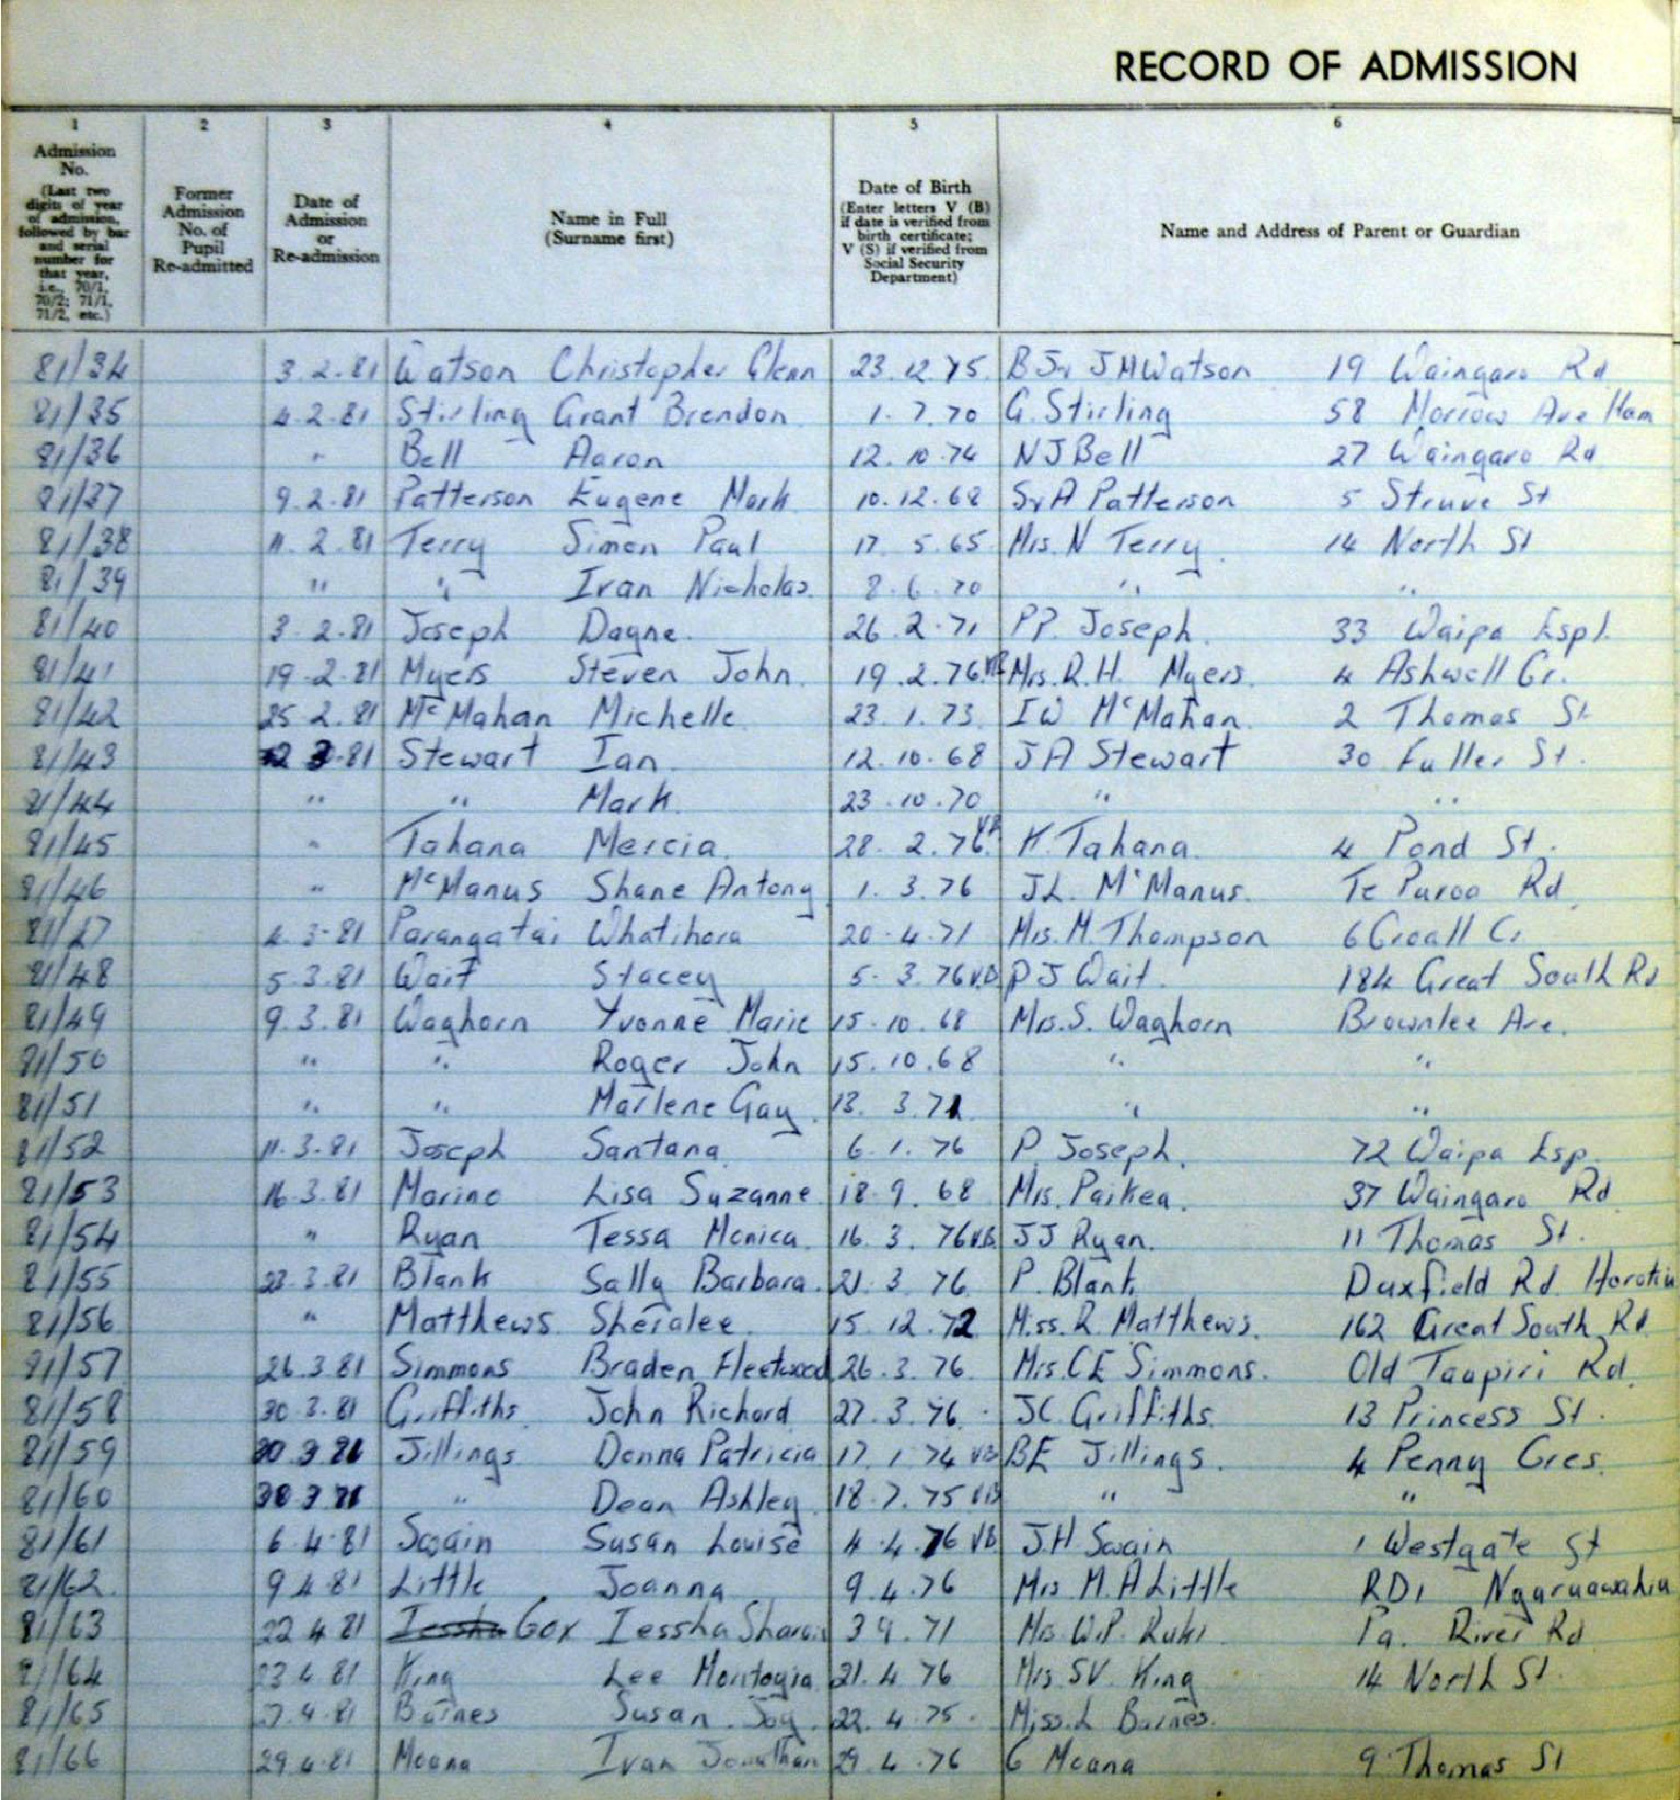 RECORD OF ADMISSION
1 2 3 4 5 6
Admission No. (Last two digits of year of admission, followed by bar and serial number for that year, i.e., 70/1, 70/2; 71/1, 71/2, etc.)
Former Admission No. of Pupil Re-admitted
Date of Admission or Re-admission
Name in Full (Surname first)
Date of Birth (Enter letters V (B) if date is verified from birth certificate; V (S) if verified from Social Security Department)
Name and Address of Parent or Guardian
81/34 3.2.81 Watson Christopher Glenn 23.12.75 B J & J M Watson 19 Waingaro Rd
81/35 4.2.81 Stirling Grant Brendon 1.7.70 G. Stirling 58 Morrow Ave Ham
81/36 " Bell Aaron 12.10.74 N J Bell 27 Waingaro Rd
81/37 9.2.81 Patterson Eugene Mark 10.12.68 S & A Patterson 5 Struve St
81/38 11.2.81 Terry Simon Paul 17 5.65 Mrs. N Terry. 14 North St
81/39 " " Ivan Nicholas. 8.6.70 " "
81/40 3.2.81 Joseph Dayne. 26.2.71 P.P. Joseph. 33 Waipa Espl.
81/41 19.2.81 Myers Steven John. 19.2.76 VB Mrs. R.H. Myers. 4 Ashwell Cr.
81/42 25 2.81 McMahan Michelle 23.1.73. I W McMahan. 2 Thomas St
81/43 2 3.81 Stewart Ian. 12.10.68 J A Stewart 30 Fuller St.
81/44 " " Mark. 23.10.70 " "
81/45 " Tahana Mercia. 28. 2.76 VB K. Tahana. 4 Pond St.
81/46 " McManus Shane Antony 1.3.76 J L. McManus. Te Puroa Rd
81/47 4.3.81 Parangatai Whatihora 20.4.71 Mrs. M. Thompson 6 Croall Cr
81/48 5.3.81 Wait Stacey 5.3.76 V.B P J Wait. 184 Great South Rd
81/49 9.3.81 Waghorn Yvonne Marie 15.10.68 Mrs. S. Waghorn Brownlee Ave.
81/50 " " Roger John 15.10.68 " "
81/51 " " Marlene Gay. 13. 3.71 " "
81/52 11.3.81 Joseph Santana. 6.1.76 P Joseph. 72 Waipa Esp.
81/53 16.3.81 Marino Lisa Suzanne 18.9.68 Mrs. Paikea. 37 Waingaro Rd
81/54 " Ryan Tessa Monica. 16.3.76 V.B. J J Ryan. 11 Thomas St.
81/55 23.3.81 Blank Sally Barbara. 21.3 76 P. Blank. Duxfield Rd Horotiu
81/56 " Matthews Sheralee. 15.12.72 Miss. R. Matthews. 162 Great South Rd
81/57 26.3.81 Simmons Braden Fleetwood 26.3.76. Mrs. C E Simmons. Old Taupiri Rd.
81/58 30.3.81 Griffiths John Richard 27.3.76. J C. Griffiths. 13 Princess St.
81/59 30 3 81 Jillings Donna Patricia 17.1.74 VB B E Jillings. 4 Penny Cres.
81/60 30 3 81 " Dean Ashley. 18.7.75 VB " "
81/61 6.4.81 Swain Susan Louise 4.4.76 VB J.H Swain 1 Westgate St
81/62 9 4.81 Little Joanna 9.4.76 Mrs M. A Little RD1 Ngaruawahia
81/63 22 4 81 Iessha Cox Iessha 3 9.71 Mrs W.P. Ruki. Pa. River Rd
81/64 23 4 81 King Lee 21.4 76 Mrs. SV. King 14 North St.
81/65 7.4.81 Barnes Susan. Joy. 22.4.75. Miss. L Barnes.
81/66 29.4.81 Moana Ivan Jonathan 29.4.76 G Moana 9 Thomas St